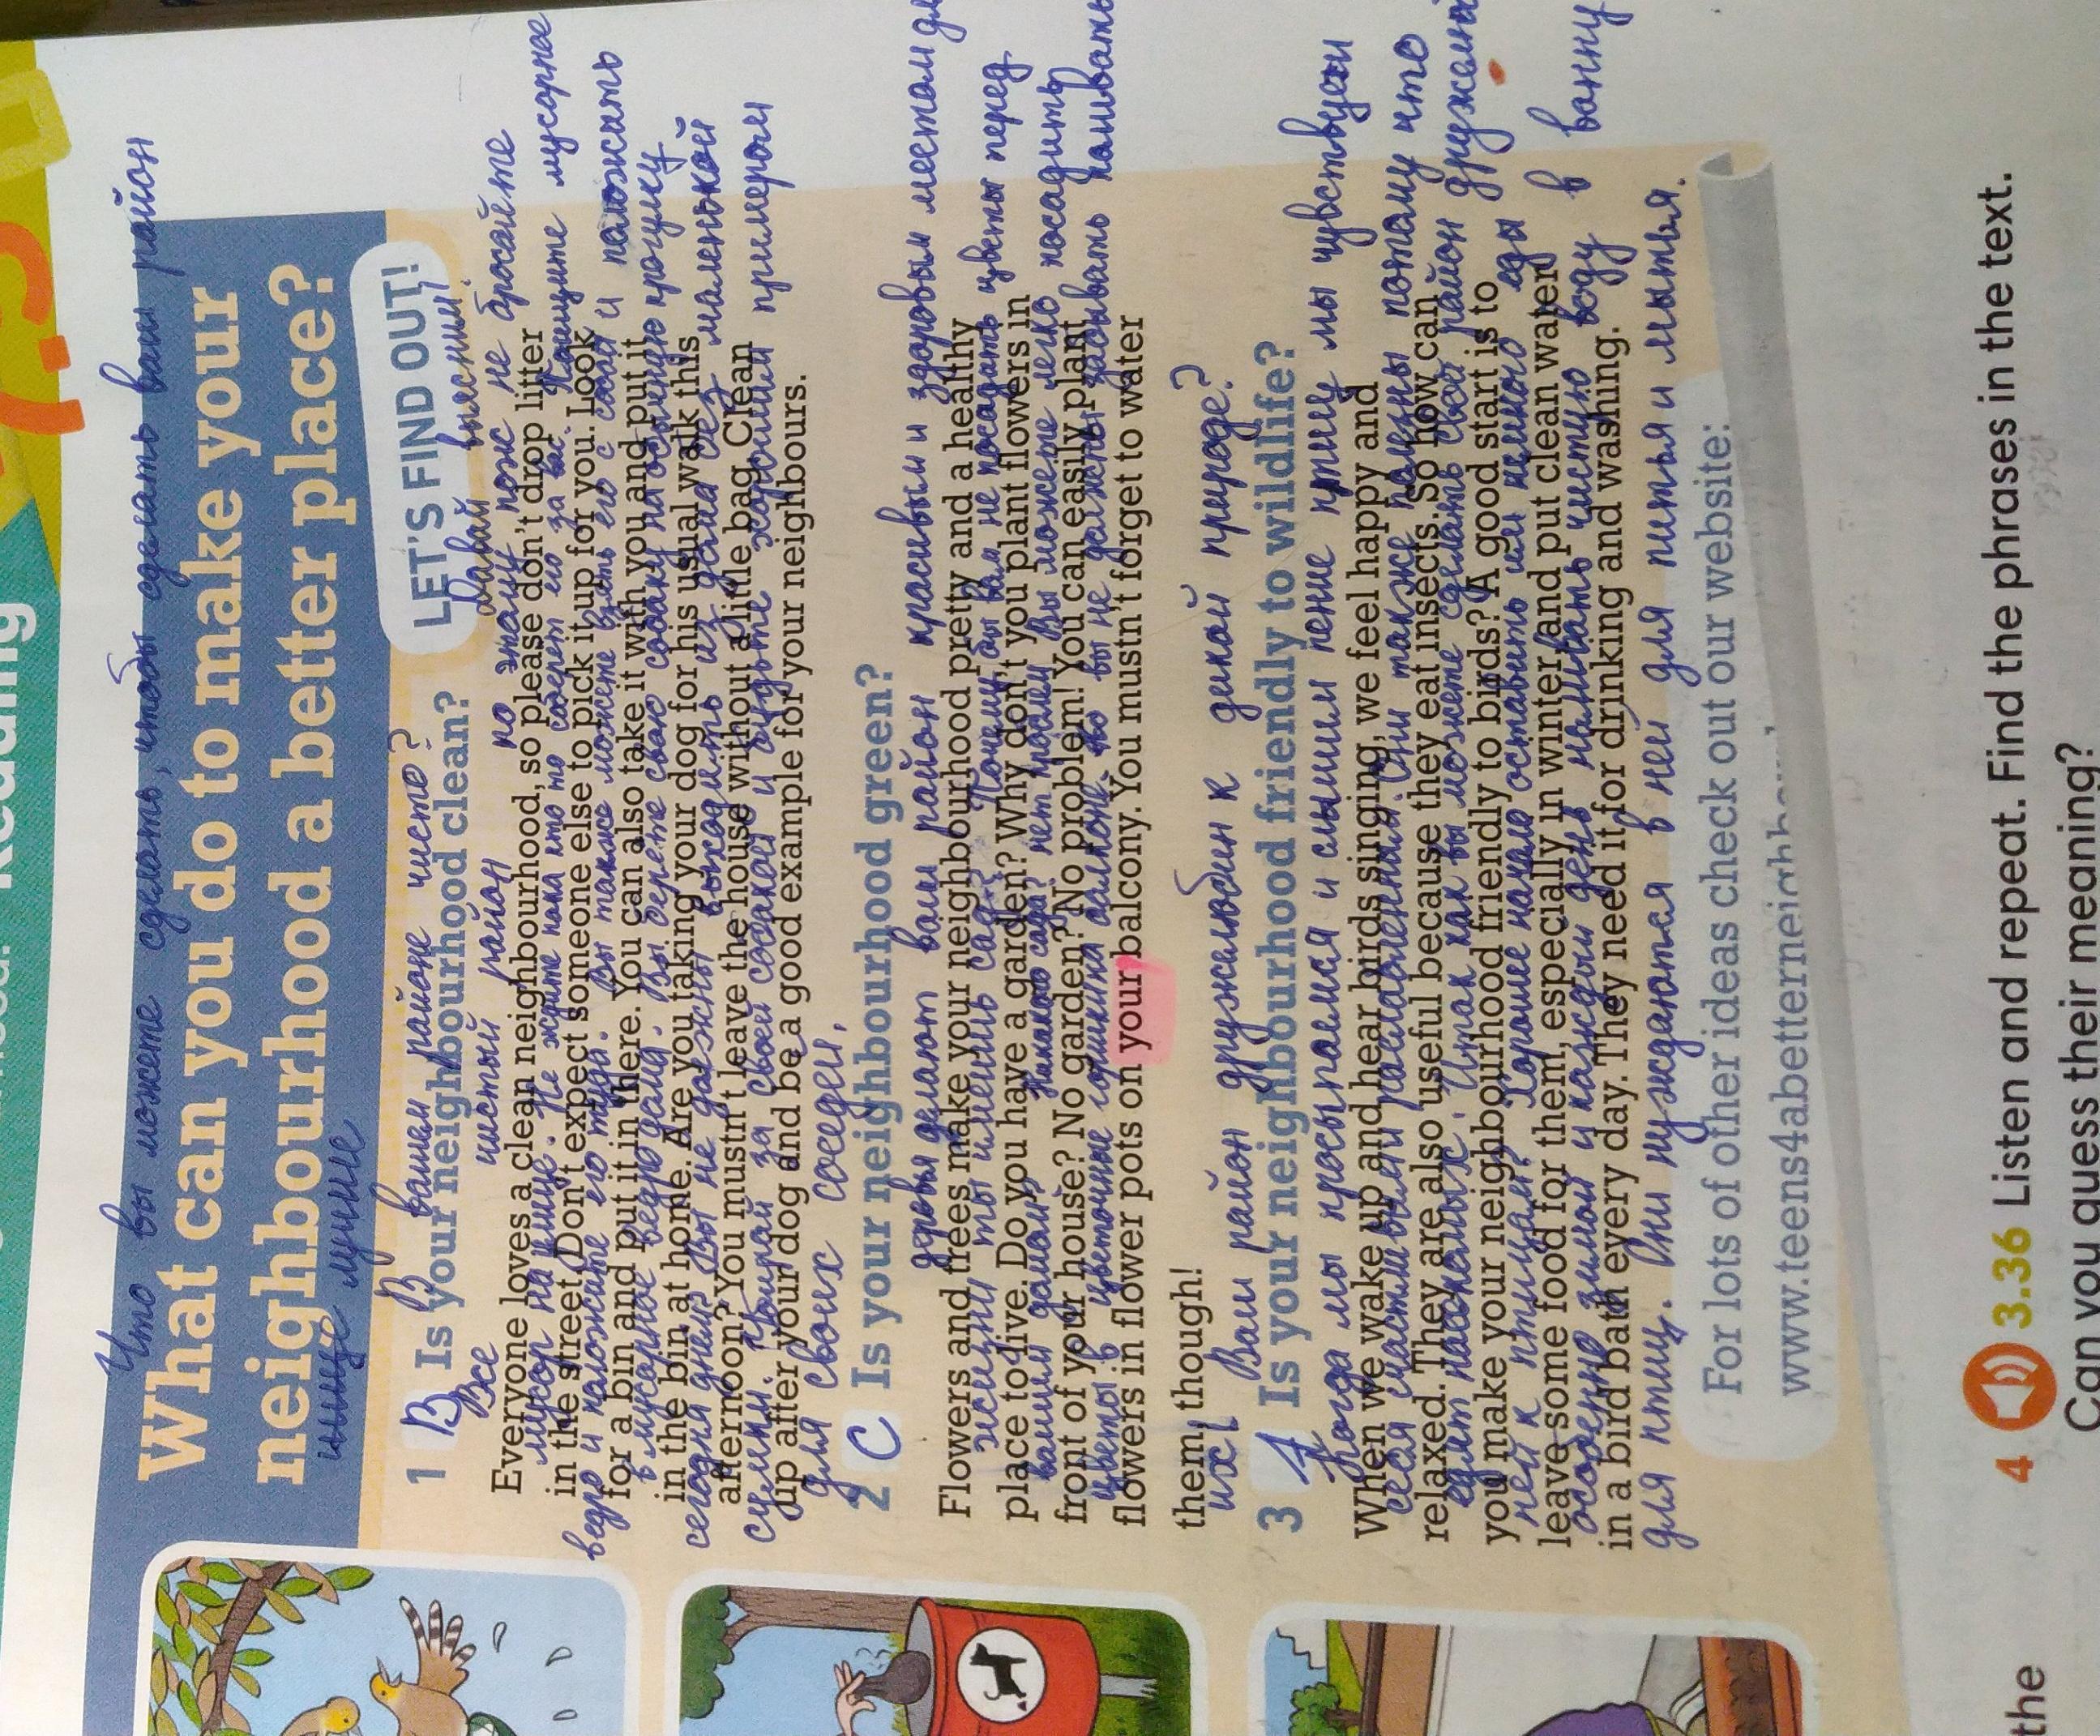 Reading
Что вы можете сделать, чтобы сделать ваш район
What can you do to make your
neighbourhood a better place?
лучше
LET'S FIND OUT!
Давай выясним!
В вашем районе чисто?
1 B Is your neighbourhood clean?
Все чистый район по этому пож не бросайте
Everyone loves a clean neighbourhood, so please don't drop litter
мусор на улице. Не ждите пока кто то соберет его за вас. Поищите мусорное
in the street. Don't expect someone else to pick it up for you. Look
ведро и положите его туда. Вы также можете взять его с собой и положить
for a bin and put it in there. You can also take it with you and put it
в мусорное ведро дома. Вы берете свою собаку на обычную прогулку
in the bin at home. Are you taking your dog for his usual walk this
сегодня днем? Вы не должны выходить из дома без маленькой
afternoon? You mustn't leave the house without a little bag. Clean
сумки. Убирай за своей собакой и будьте хорошим примером
up after your dog and be a good example for your neighbours.
для своих соседей.
2 C Is your neighbourhood green?
деревья делают ваш район красивым и здоровым местом
Flowers and trees make your neighbourhood pretty and a healthy
жизни ты имеешь сад? Почему бы вам не посадить цветы перед
place to live. Do you have a garden? Why don't you plant flowers in
вашим домом? Никакого сада? нет проблем! Вы можете легко посадить
front of your house? No garden? No problem! You can easily plant
цветы в цветочные горшки на балконе. но вы не должны забывать поливать
flowers in flower pots on your balcony. You mustn't forget to water
them, though!
их!
Ваш район дружелюбин к дикой природе?
3 A Is your neighbourhood friendly to wildlife?
Когда мы просыпаемся и слышим пение птиц мы чувствуем
When we wake up and hear birds singing, we feel happy and
себя счастливыми и расслабленными. Они также полезны потому что
relaxed. They are also useful because they eat insects. So how can
едят насекомых. Итак как вы можете сделать свой район
you make your neighbourhood friendly to birds? A good start is to
ней к птицам? Хорошее начало оставить им немного еды
leave some food for them, especially in winter, and put clean water
особенно зимой и каждый день наливать чистую воду в ванну
in a bird bath every day. They need it for drinking and washing.
для птиц. Они нуждаются в ней для питья и мытья.
For lots of other ideas check out our website:
www.teens4abetterneighb
4 3.36 Listen and repeat. Find the phrases in the text.
Can you guess their meaning?
the